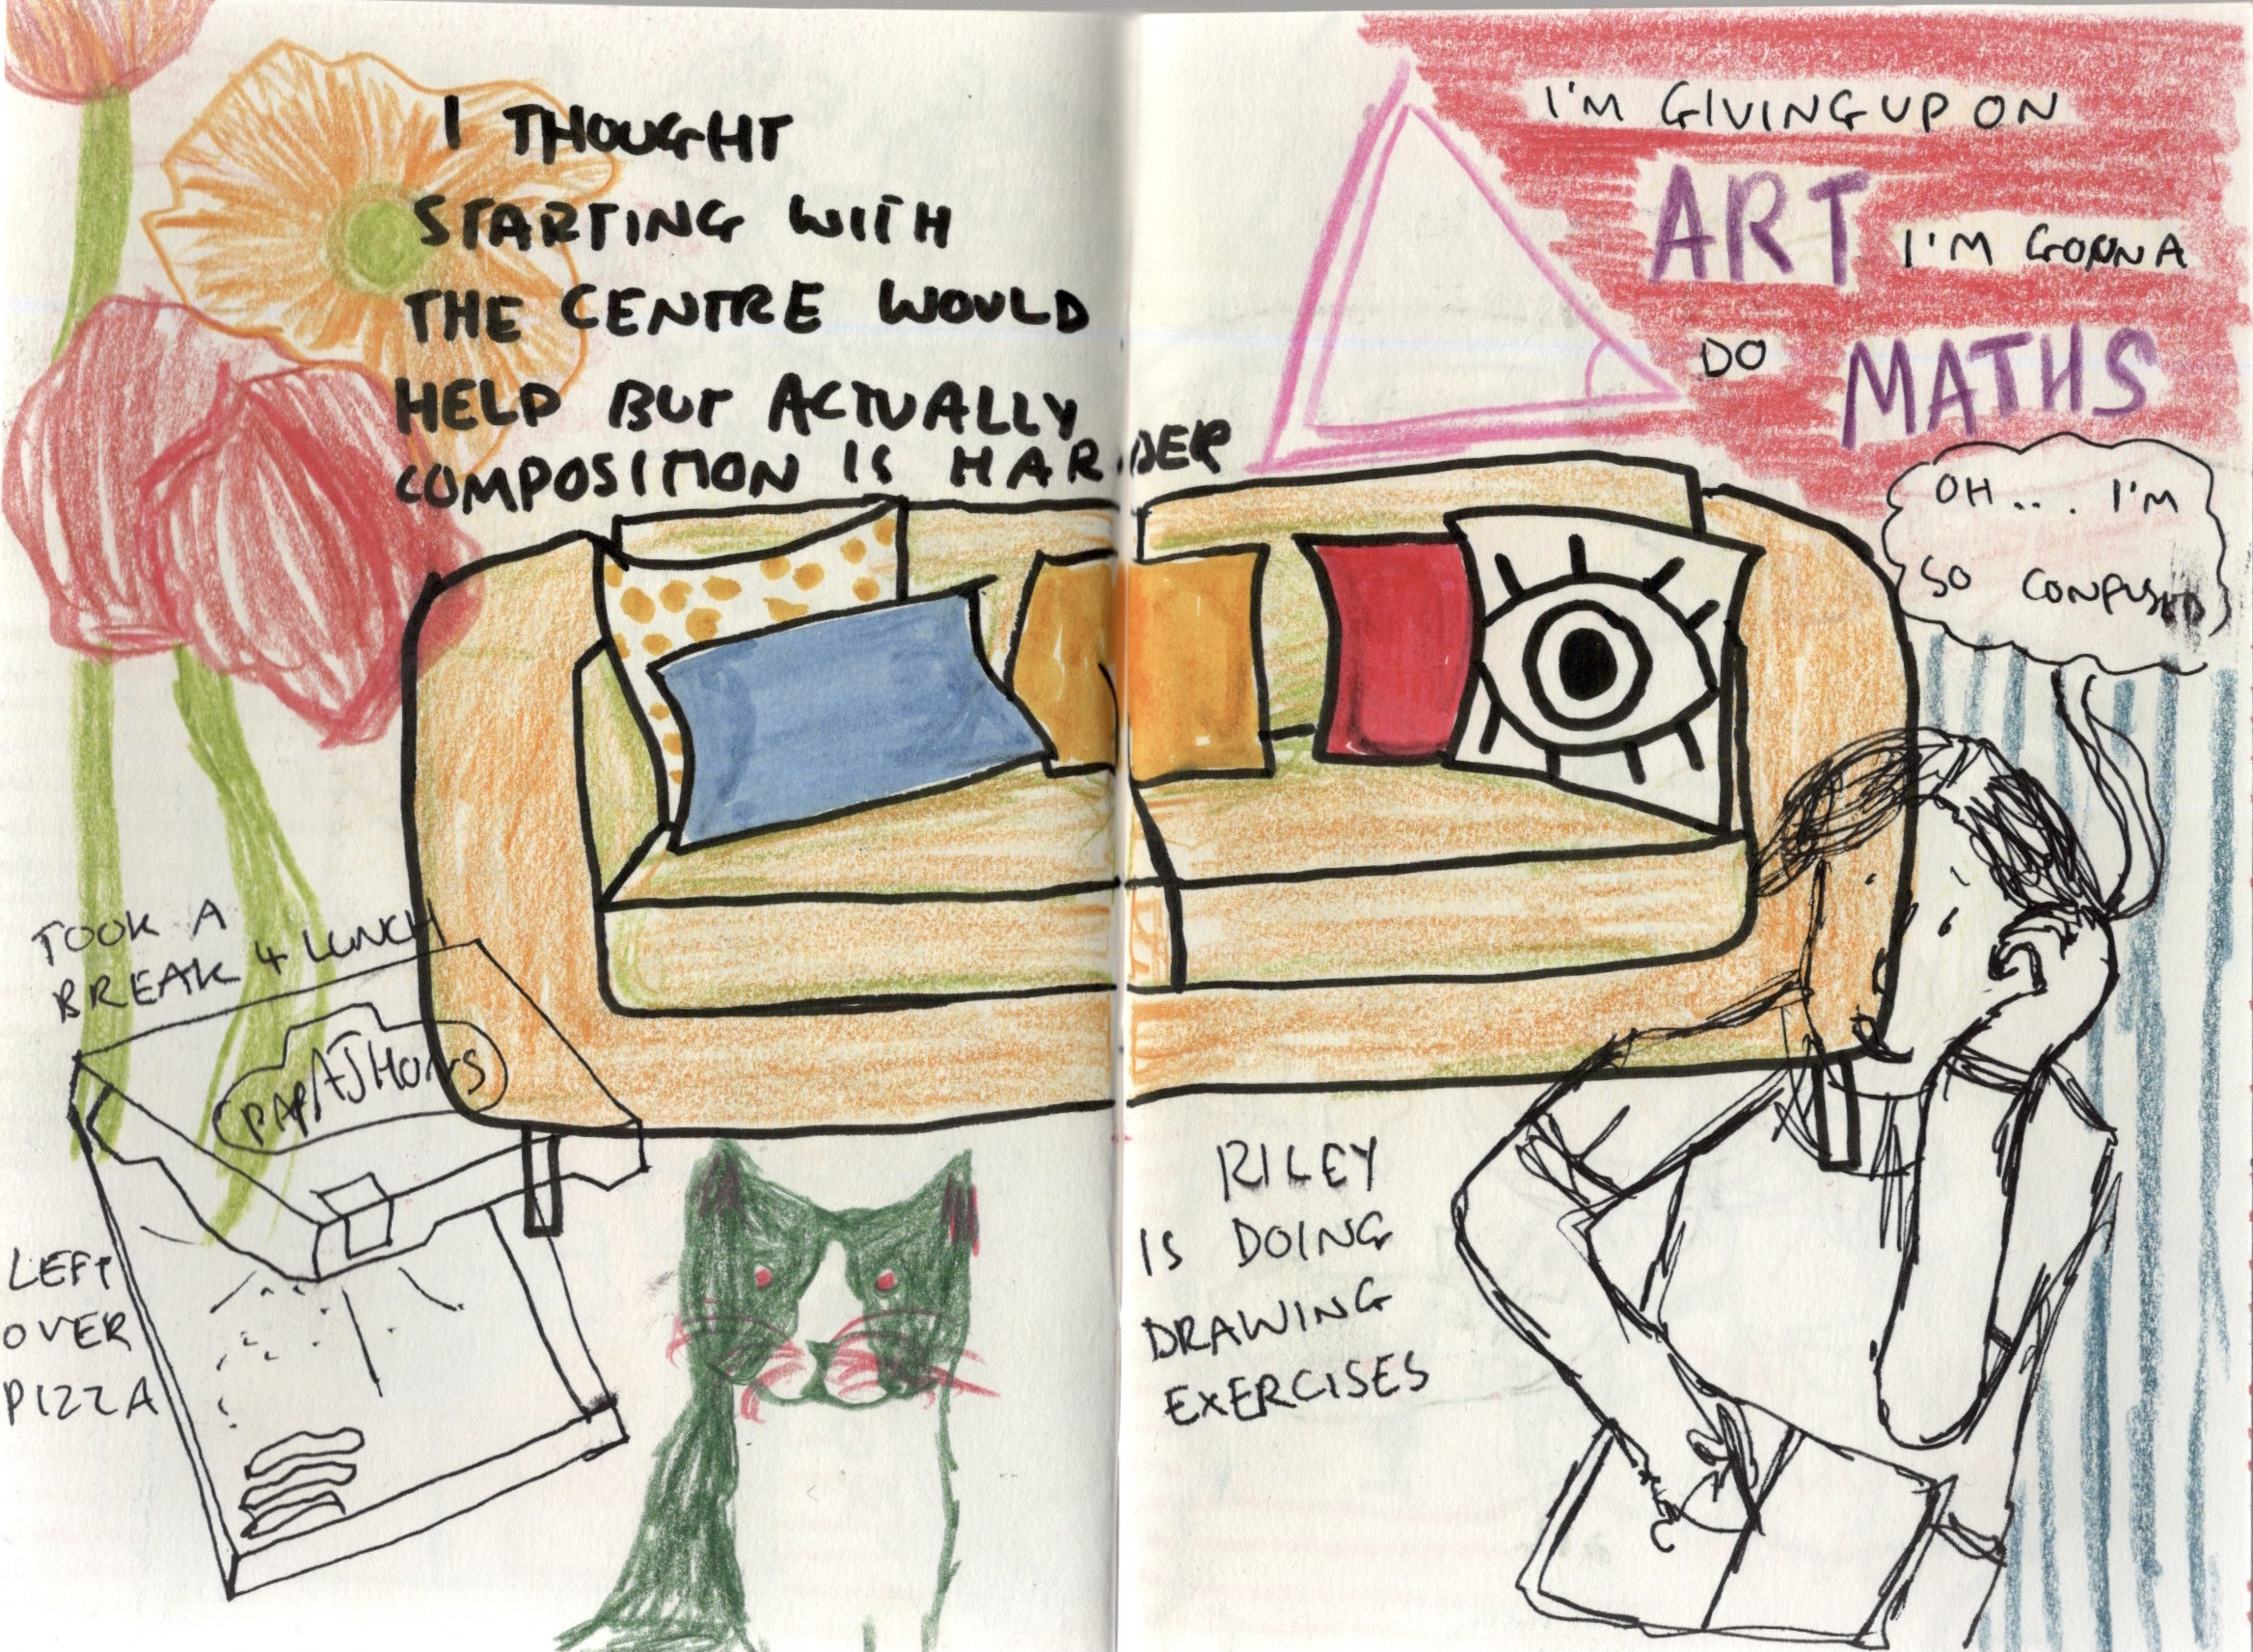 I THOUGHT
STARTING WITH
THE CENTRE WOULD
HELP BUT ACTUALLY
COMPOSITION IS HARDER
I'M GIVING UP ON
ART I'M GONNA
DO MATHS
OH... I'M
SO CONFUSED
TOOK A
BREAK 4 LUNCH
PAPA JHONS
LEFT
OVER
PIZZA
RILEY
IS DOING
DRAWING
EXERCISES